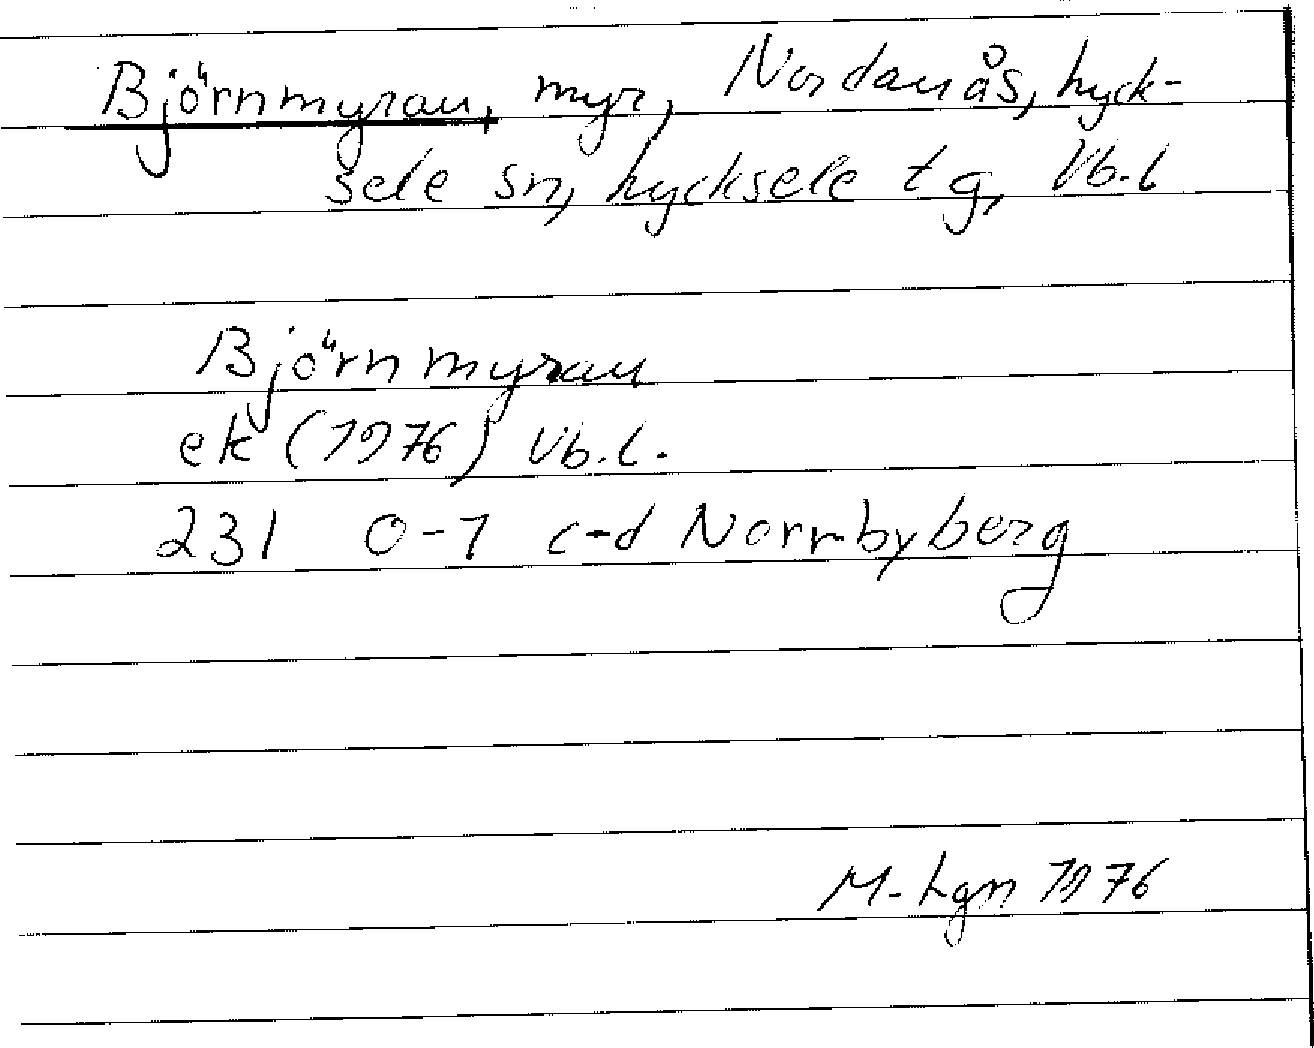 Björnmyran, myr, Nordanås, Lyck-
sele sn, Lycksele tg, Vb.l
Björnmyran
ek (1976) Vb.l.
231 0-1 c-d Norrbyberg
M-Lgn 1976